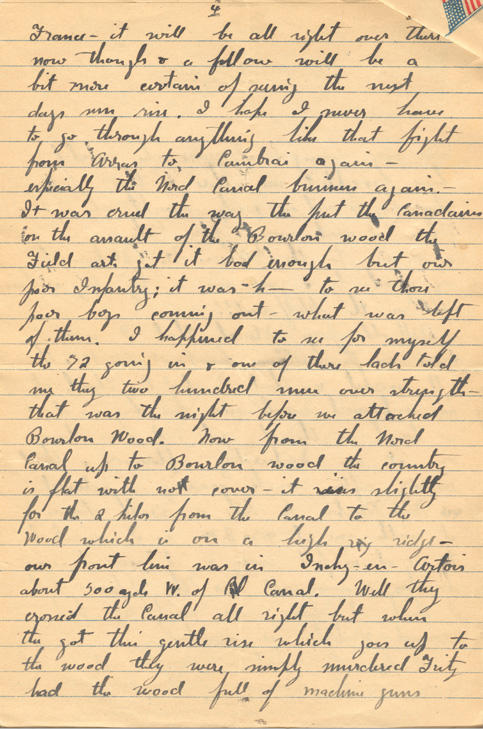 4
France - it will be all right over there
now though & a fellow will be a
bit more certain of seeing the next
days sun rise. I hope I never have
to go through anything like that fight
from Arras to Cambrai again -
especially the Nord Canal business again. -
It was cruel the way the put the Canadains
on the assault of the Bourlon wood the
Field art. got it bad enough but our
poor Infantry; it was h— to see those
poor boys coming out - what was left
of them. I happened to see for myself
the 72 going in & one of there lads told
me they two hundred men over strength -
that was the night before we attacked
Bourlon Wood. Now from the Nord
Canal up to Bourlon wood the country
is flat with not cover - it rises slightly
for the 2 kilos from the Canal to the
Wood which is on a high ridge -
our front line was in Inchy-en-Artois
about 500 yds W. of Canal. Well they
crossed the Canal all right but when
the got this gentle rise which goes up to
the wood they were simply murdered Fritz
had the wood full of machine guns